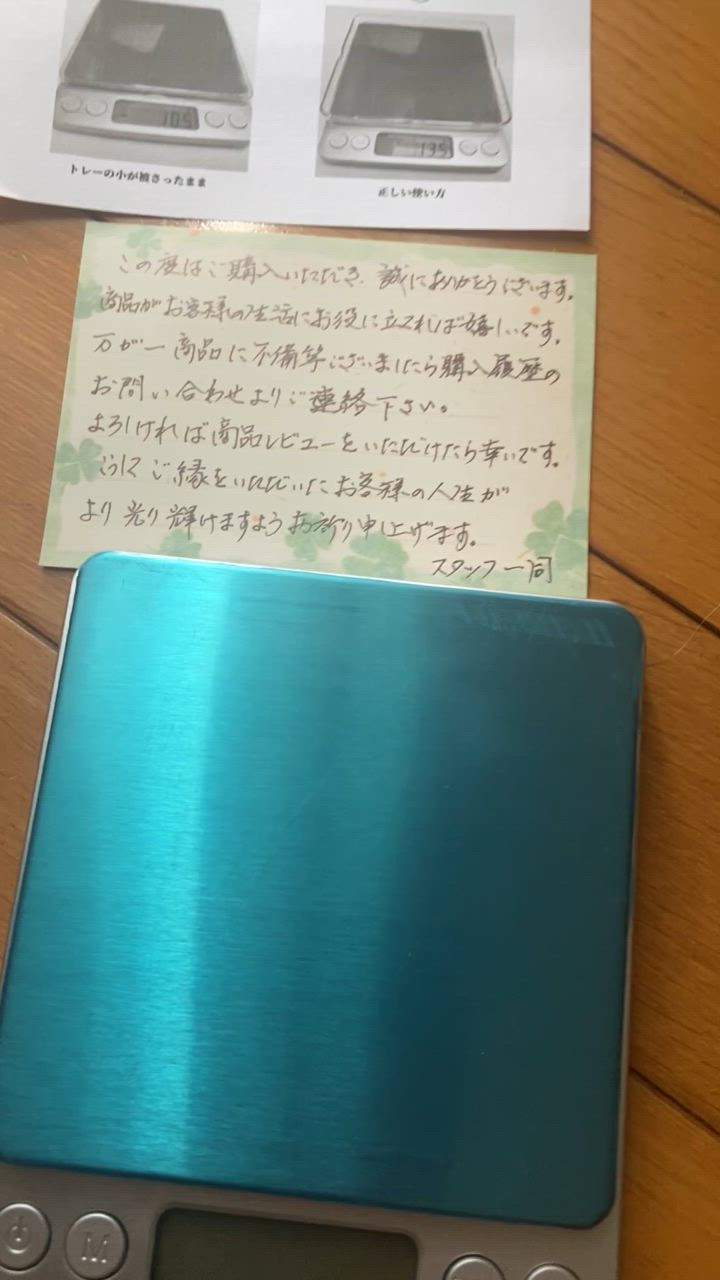 105
135
トレーの小が被さったまま
正しい使い方
この度はご購入いただき、誠にありがとうございます。
商品がお客様の生活にお役に立てれば嬉しいです。
万が一商品に不備等ございましたら購入履歴の
お問い合わせよりご連絡下さい。
よろしければ商品レビューをいただけたら幸いです。
ご縁をいただいたお客様の人生が
より光り輝けますようお祈り申し上げます。
スタッフ一同
M